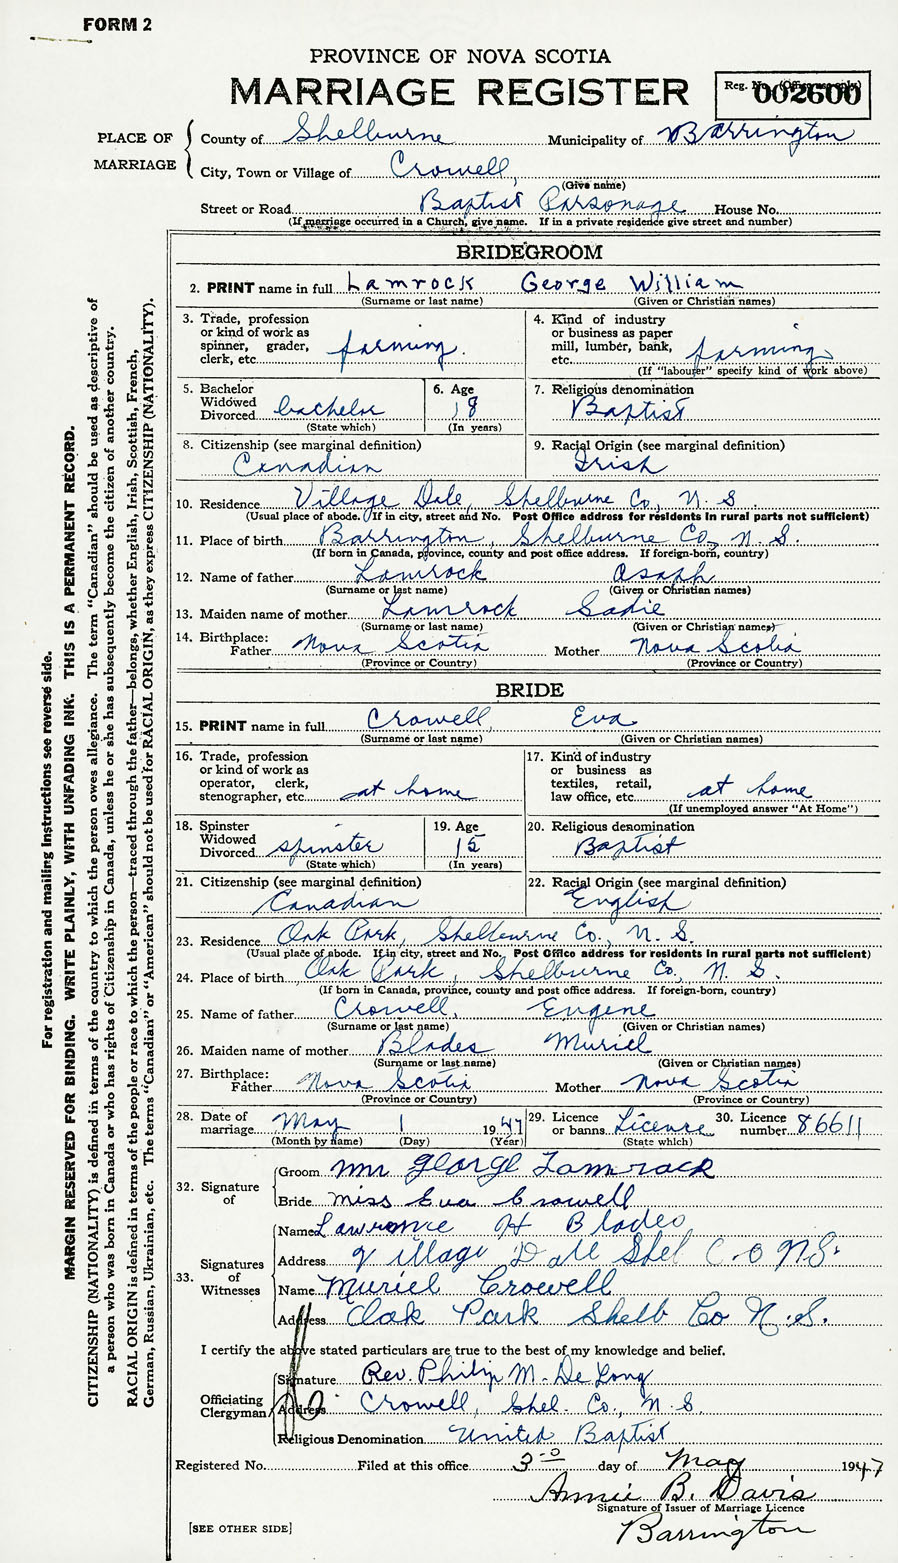 FORM 2
PROVINCE OF NOVA SCOTIA
MARRIAGE REGISTER
Reg. No. (Office use only)
002600
PLACE OF MARRIAGE
County of Shelburne Municipality of Barrington
City, Town or Village of Crowell,
(Give name)
Street or Road Baptist Parsonage House No.
(If marriage occurred in a Church, give name. If in a private residence give street and number)
BRIDEGROOM
2. PRINT name in full Lamrock George William
(Surname or last name) (Given or Christian names)
3. Trade, profession
or kind of work as
spinner, grader,
clerk, etc. farming.
4. Kind of industry
or business as paper
mill, lumber, bank,
etc. farming
(If "labourer" specify kind of work above)
5. Bachelor
Widowed
Divorced bachelor
(State which)
6. Age
18
(In years)
7. Religious denomination
Baptist
8. Citizenship (see marginal definition)
Canadian
9. Racial Origin (see marginal definition)
Irish
10. Residence Village Dale, Shelburne Co, N. S
(Usual place of abode. If in city, street and No. Post Office address for residents in rural parts not sufficient)
11. Place of birth Barrington, Shelburne Co, N. S.
(If born in Canada, province, county and post office address. If foreign-born, country)
12. Name of father Lamrock Asaph
(Surname or last name) (Given or Christian names)
13. Maiden name of mother Lamrock Sadie
(Surname or last name) (Given or Christian names)
14. Birthplace:
Father Nova Scotia Mother Nova Scotia
(Province or Country) (Province or Country)
BRIDE
15. PRINT name in full Crowell, Eva
(Surname or last name) (Given or Christian names)
16. Trade, profession
or kind of work as
operator, clerk,
stenographer, etc. at home
17. Kind of industry
or business as
textiles, retail,
law office, etc. at home
(If unemployed answer "At Home")
18. Spinster
Widowed
Divorced spinster
(State which)
19. Age
15
(In years)
20. Religious denomination
Baptist
21. Citizenship (see marginal definition)
Canadian
22. Racial Origin (see marginal definition)
English
23. Residence Oak Park, Shelburne Co., N. S.
(Usual place of abode. If in city, street and No. Post Office address for residents in rural parts not sufficient)
24. Place of birth Oak Park, Shelburne Co., N. S.
(If born in Canada, province, county and post office address. If foreign-born, country)
25. Name of father Crowell, Eugene
(Surname or last name) (Given or Christian names)
26. Maiden name of mother Blades Muriel
(Surname or last name) (Given or Christian names)
27. Birthplace:
Father Nova Scotia Mother Nova Scotia
(Province or Country) (Province or Country)
28. Date of
marriage May 1 1947
(Month by name) (Day) (Year)
29. Licence
or banns License
(State which)
30. Licence
number 86611
32. Signature of
Groom Mr George Lamrock
Bride Miss Eva Crowell
33. Signatures of Witnesses
Name Lawrence H Blades
Address Village Dale Shel Co N.S.
Name Muriel Crowell
Address Oak Park Shelb Co N.S.
I certify the above stated particulars are true to the best of my knowledge and belief.
Officiating Clergyman
Signature Rev. Philip M. DeLong
Address Crowell, Shel. Co., N. S.
Religious Denomination United Baptist
Registered No. Filed at this office 3rd day of May 1947
Annie B. Davis
Signature of Issuer of Marriage Licence
Barrington
[SEE OTHER SIDE]
For registration and mailing instructions see reverse side.
MARGIN RESERVED FOR BINDING. WRITE PLAINLY, WITH UNFADING INK. THIS IS A PERMANENT RECORD.
CITIZENSHIP (NATIONALITY) is defined in terms of the country to which the person owes allegiance. The term "Canadian" should be used as descriptive of
a person who was born in Canada or who has rights of Citizenship in Canada, unless he or she has subsequently become the citizen of another country.
RACIAL ORIGIN is defined in terms of the people or race to which the person—traced through the father—belongs, whether English, Irish, Scottish, French,
German, Russian, Ukrainian, etc. The terms "Canadian" or "American" should not be used for RACIAL ORIGIN, as they express CITIZENSHIP (NATIONALITY).